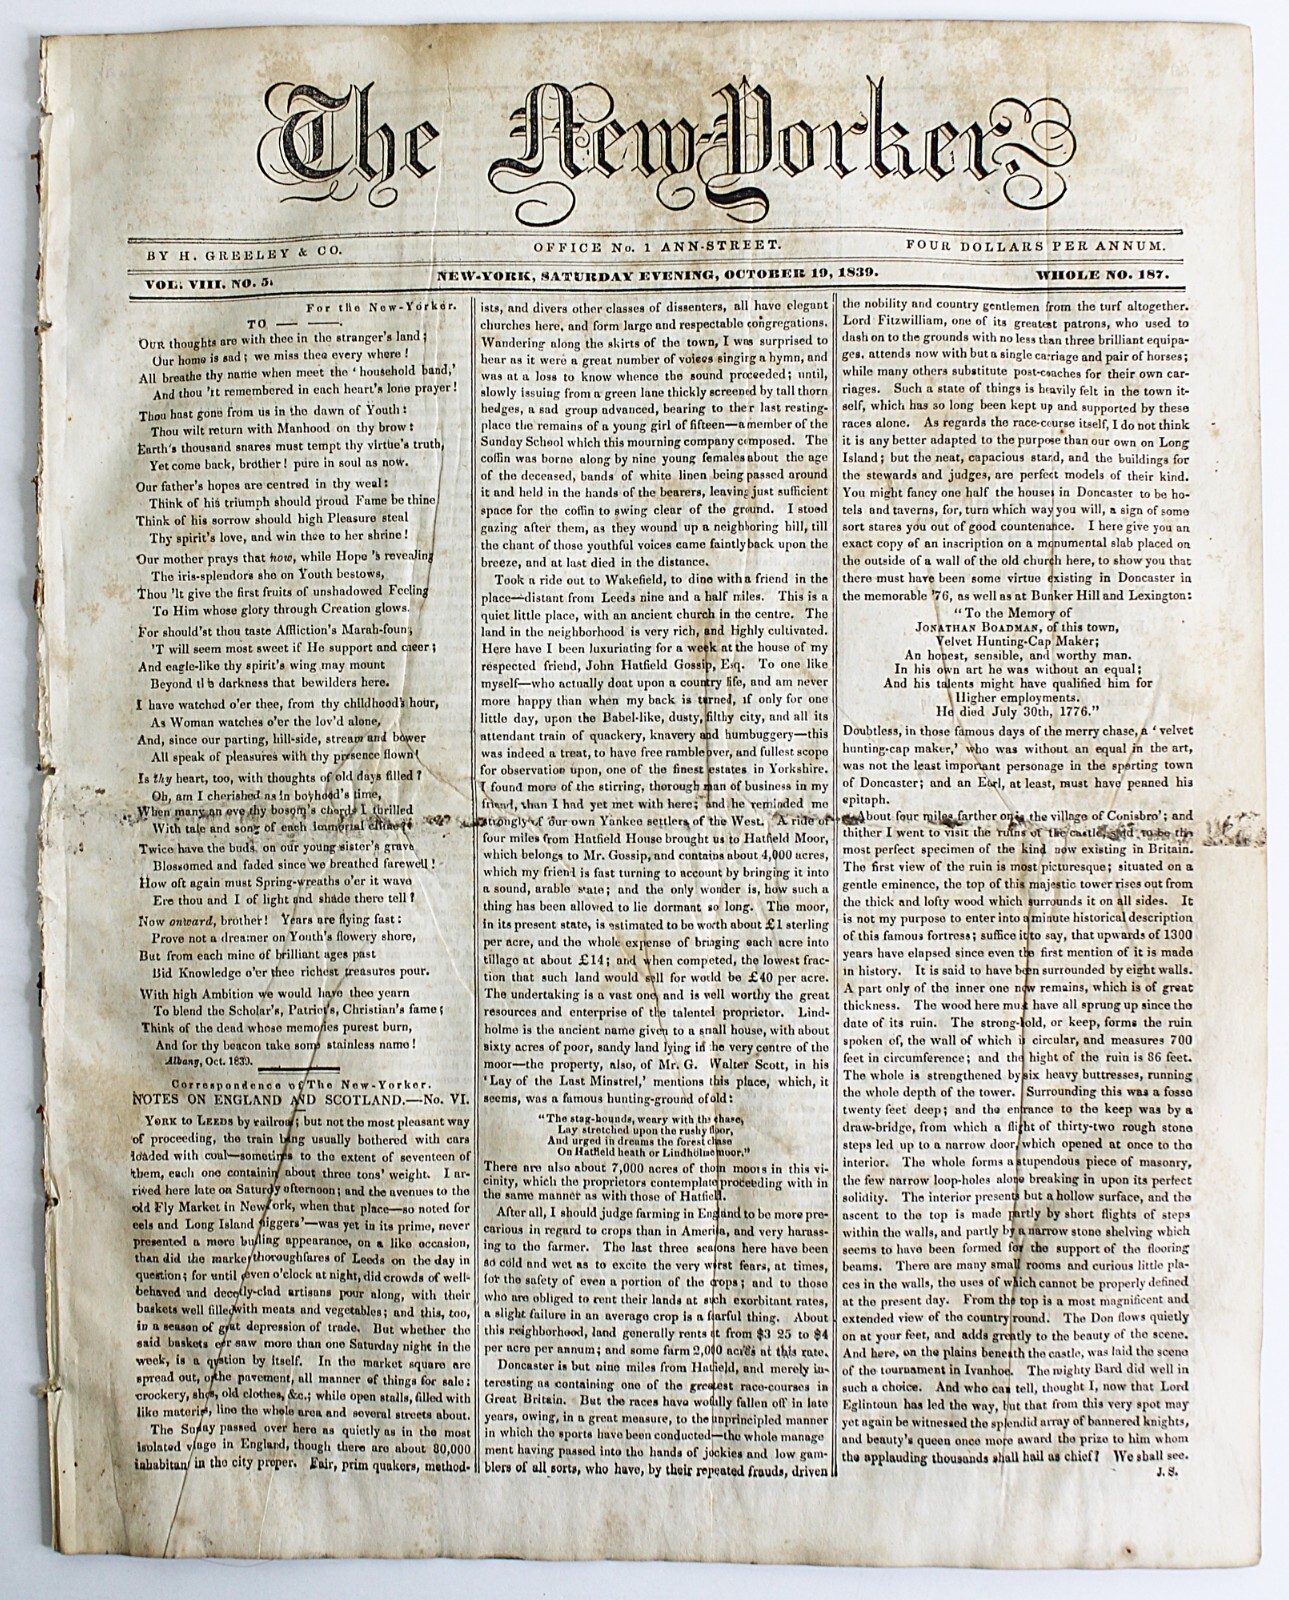 The New-Yorker.
BY H. GREELEY & CO.
OFFICE No. 1 ANN-STREET.
FOUR DOLLARS PER ANNUM.
VOL. VIII. NO. 5.
NEW-YORK, SATURDAY EVENING, OCTOBER 19, 1839.
WHOLE NO. 187.
For the New-Yorker.
TO — —.
OUR thoughts are with thee in the stranger's land;
Our home is sad; we miss thee every where!
All breathe thy name when meet the 'household band,'
And thou 'rt remembered in each heart's lone prayer!
Thou hast gone from us in the dawn of Youth:
Thou wilt return with Manhood on thy brow:
Earth's thousand snares must tempt thy virtue's truth,
Yet come back, brother! pure in soul as now.
Our father's hopes are centred in thy weal:
Think of his triumph should proud Fame be thine
Think of his sorrow should high Pleasure steal
Thy spirit's love, and win thee to her shrine!
Our mother prays that now, while Hope 's revealing
The iris-splendors she on Youth bestows,
Thou 'lt give the first fruits of unshadowed Feeling
To Him whose glory through Creation glows.
For should'st thou taste Affliction's Marah-foun;
'T will seem most sweet if He support and cheer;
And eagle-like thy spirit's wing may mount
Beyond the darkness that bewilders here.
I have watched o'er thee, from thy childhood's hour,
As Woman watches o'er the lov'd alone,
And, since our parting, hill-side, stream and bower
All speak of pleasures with thy presence flown!
Is thy heart, too, with thoughts of old days filled?
Oh, am I cherished as in boyhood's time,
When many an eve thy bosom's chords I thrilled
With tale and song of each immortal
Twice have the buds on our young sister's grave
Blossomed and faded since we breathed farewell!
How oft again must Spring-wreaths o'er it wave
Ere thou and I of light and shade there tell?
Now onward, brother! Years are flying fast:
Prove not a dreamer on Youth's flowery shore,
But from each mine of brilliant ages past
Bid Knowledge o'er thee richest treasures pour.
With high Ambition we would have thee yearn
To blend the Scholar's, Patriot's, Christian's fame;
Think of the dead whose memories purest burn,
And for thy beacon take some stainless name!
Albany, Oct. 1839.
Correspondence of The New-Yorker.
NOTES ON ENGLAND AND SCOTLAND.—No. VI.
YORK to LEEDS by railroad; but not the most pleasant way
of proceeding, the train being usually bothered with cars
loaded with coal—sometimes to the extent of seventeen of
them, each one containing about three tons' weight. I ar-
rived here late on Saturday afternoon; and the avenues to the
old Fly Market in New-York, when that place—so noted for
eels and Long Island 'niggers'—was yet in its prime, never
presented a more bustling appearance, on a like occasion,
than did the market thoroughfares of Leeds on the day in
question; for until even o'clock at night, did crowds of well-
behaved and decently-clad artisans pour along, with their
baskets well filled with meats and vegetables; and this, too,
in a season of great depression of trade. But whether the
said baskets ever saw more than one Saturday night in the
week, is a question by itself. In the market square are
spread out, on the pavement, all manner of things for sale:
crockery, shoes, old clothes, &c.; while open stalls, filled with
like material, line the whole area and several streets about.
The Sunday passed over here as quietly as in the most
isolated village in England, though there are about 80,000
inhabitants in the city proper. Fair, prim quakers, method-
ists, and divers other classes of dissenters, all have elegant
churches here, and form large and respectable congregations.
Wandering along the skirts of the town, I was surprised to
hear as it were a great number of voices singing a hymn, and
was at a loss to know whence the sound proceeded; until,
slowly issuing from a green lane thickly screened by tall thorn
hedges, a sad group advanced, bearing to their last resting-
place the remains of a young girl of fifteen—a member of the
Sunday School which this mourning company composed. The
coffin was borne along by nine young females about the age
of the deceased, bands of white linen being passed around
it and held in the hands of the bearers, leaving just sufficient
space for the coffin to swing clear of the ground. I stood
gazing after them, as they wound up a neighboring hill, till
the chant of those youthful voices came faintly back upon the
breeze, and at last died in the distance.
Took a ride out to Wakefield, to dine with a friend in the
place—distant from Leeds nine and a half miles. This is a
quiet little place, with an ancient church in the centre. The
land in the neighborhood is very rich, and highly cultivated.
Here have I been luxuriating for a week at the house of my
respected friend, John Hatfield Gossip, Esq. To one like
myself—who actually doat upon a country life, and am never
more happy than when my back is turned, if only for one
little day, upon the Babel-like, dusty, filthy city, and all its
attendant train of quackery, knavery and humbuggery—this
was indeed a treat, to have free ramble over, and fullest scope
for observation upon, one of the finest estates in Yorkshire.
I found more of the stirring, thorough man of business in my
friend, than I had yet met with here; and he reminded me
strongly of our own Yankee settlers of the West. A ride of
four miles from Hatfield House brought us to Hatfield Moor,
which belongs to Mr. Gossip, and contains about 4,000 acres,
which my friend is fast turning to account by bringing it into
a sound, arable state; and the only wonder is, how such a
thing has been allowed to lie dormant so long. The moor,
in its present state, is estimated to be worth about £1 sterling
per acre, and the whole expense of bringing each acre into
tillage at about £14; and when competed, the lowest frac-
tion that such land would sell for would be £40 per acre.
The undertaking is a vast one, and is well worthy the great
resources and enterprise of the talented proprietor. Lind-
holme is the ancient name given to a small house, with about
sixty acres of poor, sandy land lying in the very centre of the
moor—the property, also, of Mr. G. Walter Scott, in his
'Lay of the Last Minstrel,' mentions this place, which, it
seems, was a famous hunting-ground of old:
"The stag-hounds, weary with the chase,
Lay stretched upon the rushy floor,
And urged in dreams the forest chase
On Hatfield heath or Lindholme moor."
There are also about 7,000 acres of thorn moors in this vi-
cinity, which the proprietors contemplate proceeding with in
the same manner as with those of Hatfield.
After all, I should judge farming in England to be more pre-
carious in regard to crops than in America, and very harass-
ing to the farmer. The last three seasons here have been
so cold and wet as to excite the very worst fears, at times,
for the safety of even a portion of the crops; and to those
who are obliged to rent their lands at such exorbitant rates,
a slight failure in an average crop is a fearful thing. About
this neighborhood, land generally rents at from $3 25 to $4
per acre per annum; and some farm 2,000 acres at this rate.
Doncaster is but nine miles from Hatfield, and merely in-
teresting as containing one of the greatest race-courses in
Great Britain. But the races have wofully fallen off in late
years, owing, in a great measure, to the unprincipled manner
in which the sports have been conducted—the whole manage
ment having passed into the hands of jockies and low gam-
blers of all sorts, who have, by their repeated frauds, driven
the nobility and country gentlemen from the turf altogether.
Lord Fitzwilliam, one of its greatest patrons, who used to
dash on to the grounds with no less than three brilliant equipa-
ges, attends now with but a single carriage and pair of horses;
while many others substitute post-coaches for their own car-
riages. Such a state of things is heavily felt in the town it-
self, which has so long been kept up and supported by these
races alone. As regards the race-course itself, I do not think
it is any better adapted to the purpose than our own on Long
Island; but the neat, capacious stand, and the buildings for
the stewards and judges, are perfect models of their kind.
You might fancy one half the houses in Doncaster to be ho-
tels and taverns, for, turn which way you will, a sign of some
sort stares you out of good countenance. I here give you an
exact copy of an inscription on a monumental slab placed on
the outside of a wall of the old church here, to show you that
there must have been some virtue existing in Doncaster in
the memorable '76, as well as at Bunker Hill and Lexington:
"To the Memory of
JONATHAN BOADMAN, of this town,
Velvet Hunting-Cap Maker;
An honest, sensible, and worthy man.
In his own art he was without an equal;
And his talents might have qualified him for
Higher employments.
He died July 30th, 1776."
Doubtless, in those famous days of the merry chase, a 'velvet
hunting-cap maker,' who was without an equal in the art,
was not the least important personage in the sporting town
of Doncaster; and an Earl, at least, must have penned his
epitaph.
About four miles farther on is the village of Conisbro'; and
thither I went to visit the ruins of the castle, said to be the
most perfect specimen of the kind now existing in Britain.
The first view of the ruin is most picturesque; situated on a
gentle eminence, the top of this majestic tower rises out from
the thick and lofty wood which surrounds it on all sides. It
is not my purpose to enter into a minute historical description
of this famous fortress; suffice it to say, that upwards of 1300
years have elapsed since even the first mention of it is made
in history. It is said to have been surrounded by eight walls.
A part only of the inner one now remains, which is of great
thickness. The wood here must have all sprung up since the
date of its ruin. The strong-hold, or keep, forms the ruin
spoken of, the wall of which is circular, and measures 700
feet in circumference; and the hight of the ruin is 86 feet.
The whole is strengthened by six heavy buttresses, running
the whole depth of the tower. Surrounding this was a fosse
twenty feet deep; and the entrance to the keep was by a
draw-bridge, from which a flight of thirty-two rough stone
steps led up to a narrow door, which opened at once to the
interior. The whole forms a stupendous piece of masonry,
the few narrow loop-holes alone breaking in upon its perfect
solidity. The interior presents but a hollow surface, and the
ascent to the top is made partly by short flights of steps
within the walls, and partly by a narrow stone shelving which
seems to have been formed for the support of the flooring
beams. There are many small rooms and curious little pla-
ces in the walls, the uses of which cannot be properly defined
at the present day. From the top is a most magnificent and
extended view of the country round. The Don flows quietly
on at your feet, and adds greatly to the beauty of the scene.
And here, on the plains beneath the castle, was laid the scene
of the tournament in Ivanhoe. The mighty Bard did well in
such a choice. And who can tell, thought I, now that Lord
Eglintoun has led the way, but that from this very spot may
yet again be witnessed the splendid array of bannered knights,
and beauty's queen once more award the prize to him whom
the applauding thousands shall hail as chief? We shall see.
J. S.